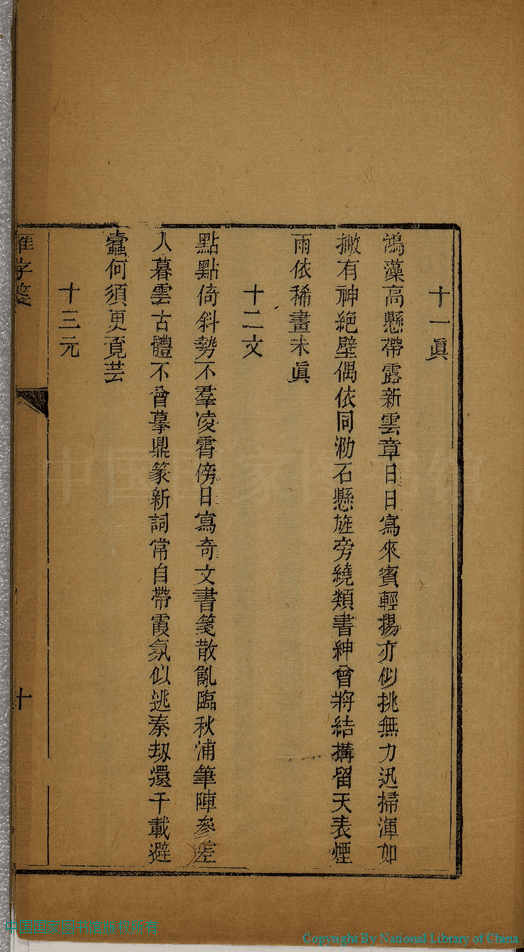 十一眞
鴻藻高懸帶露新雲章日日寫來賓輕揚亦似挑無力迅掃渾如
撇有神絕壁偶依同泐石懸旌旁繞類書紳曾將結搆留天表煙
雨依稀畫未眞
十二文
點點倚斜勢不羣凌霄傍日寫奇文書箋散亂臨秋浦筆陣參差
人暮雲古體不曾摹鼎篆新詞常自帶霞氛似逃秦刼還千載避
蠹何須更覓芸
十三元
雁字箋
十
中国国家图书馆
Copyright By National Library of China